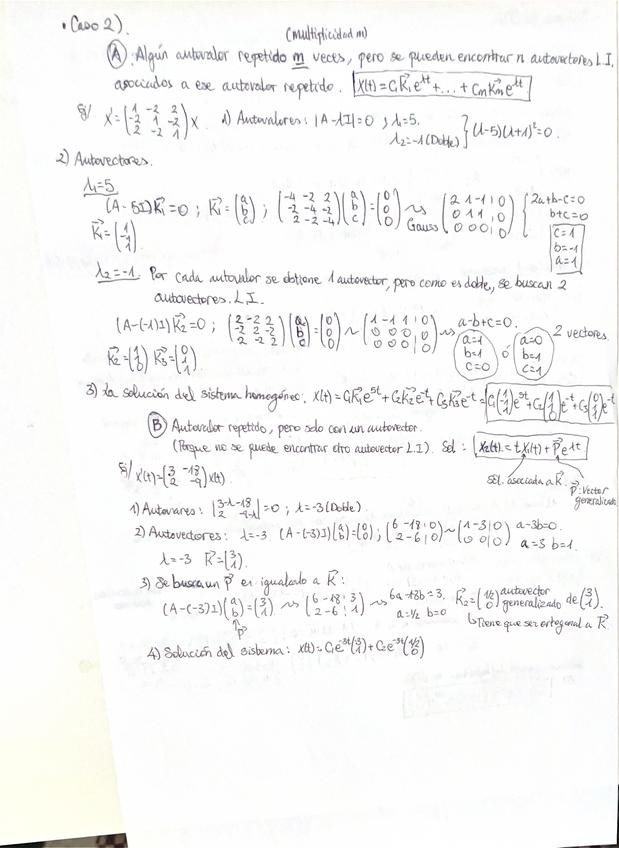 • Caso 2).
(multiplicidad m)
(A). Algún autovalor repetido m veces, pero se pueden encontrar n autovectores L.I.
asociados a ese autovalor repetido. X(t) = C₁K₁e^λt + ... + CmKme^λt
Ej/ X' = (1 -2 2; -2 1 -2; 2 -2 1) X 1) Autovalores: |A-λI|=0 ; λ₁=5. λ₂=-1 (Doble) } (λ-5)(λ+1)²=0.
2) Autovectores.
λ₁=5
(A-5I)K₁=0 ; K₁=(a b c) ; (-4 -2 2; -2 -4 -2; 2 -2 -4)(a b c)=(0 0 0) ~> Gauss (2 1 -1 | 0; 0 1 1 | 0; 0 0 0 | 0) { 2a+b-c=0 b+c=0
K₁=(1 -1 1). c=1 b=-1 a=1
λ₂=-1. Por cada autovalor se obtiene 1 autovector, pero como es doble, se buscan 2
autovectores L.I.
(A-(-1)I)K₂=0 ; (2 -2 2; -2 2 -2; 2 -2 2)(a b c)=(0 0 0) ~ (1 -1 1 | 0; 0 0 0 | 0; 0 0 0 | 0) ~> a-b+c=0. 2 vectores.
K₂=(1 1 0) K₃=(0 1 1) a=1 b=1 c=0 ó a=0 b=1 c=1
3) La solución del sistema homogéneo. X(t)=C₁K₁e^5t+C₂K₂e^-t+C₃K₃e^-t = C₁(1 -1 1)e^5t+C₂(1 1 0)e^-t+C₃(0 1 1)e^-t
(B) Autovalor repetido, pero solo con un autovector.
(Porque no se puede encontrar otro autovector L.I). Sol: X₂(t)=tX₁(t)+Pe^λt
Sol. asociada a K. P: Vector generalizado
Ej/ X'(t)=(3 -18; 2 -9)X(t).
1) Autovares: |3-λ -18; 2 -9-λ|=0 ; λ=-3 (Doble)
2) Autovectores: λ=-3 (A-(-3)I)(a b)=(0 0); (6 -18 | 0; 2 -6 | 0) ~ (1 -3 | 0; 0 0 | 0) a-3b=0. a=3 b=1.
λ=-3 K=(3 1).
3) Se busca un P es igualarlo a K:
(A-(-3)I)(a b)=(3 1) ~> (6 -18 | 3; 2 -6 | 1) ~> 6a-18b=3. a=1/2 b=0 K₂=(1/2 0) autovector generalizado de (3 1).
P
↳Tiene que ser ortogonal a K
4) Solución del sistema: X(t)=C₁e^-3t(3 1)+C₂e^-3t(1/2 0)